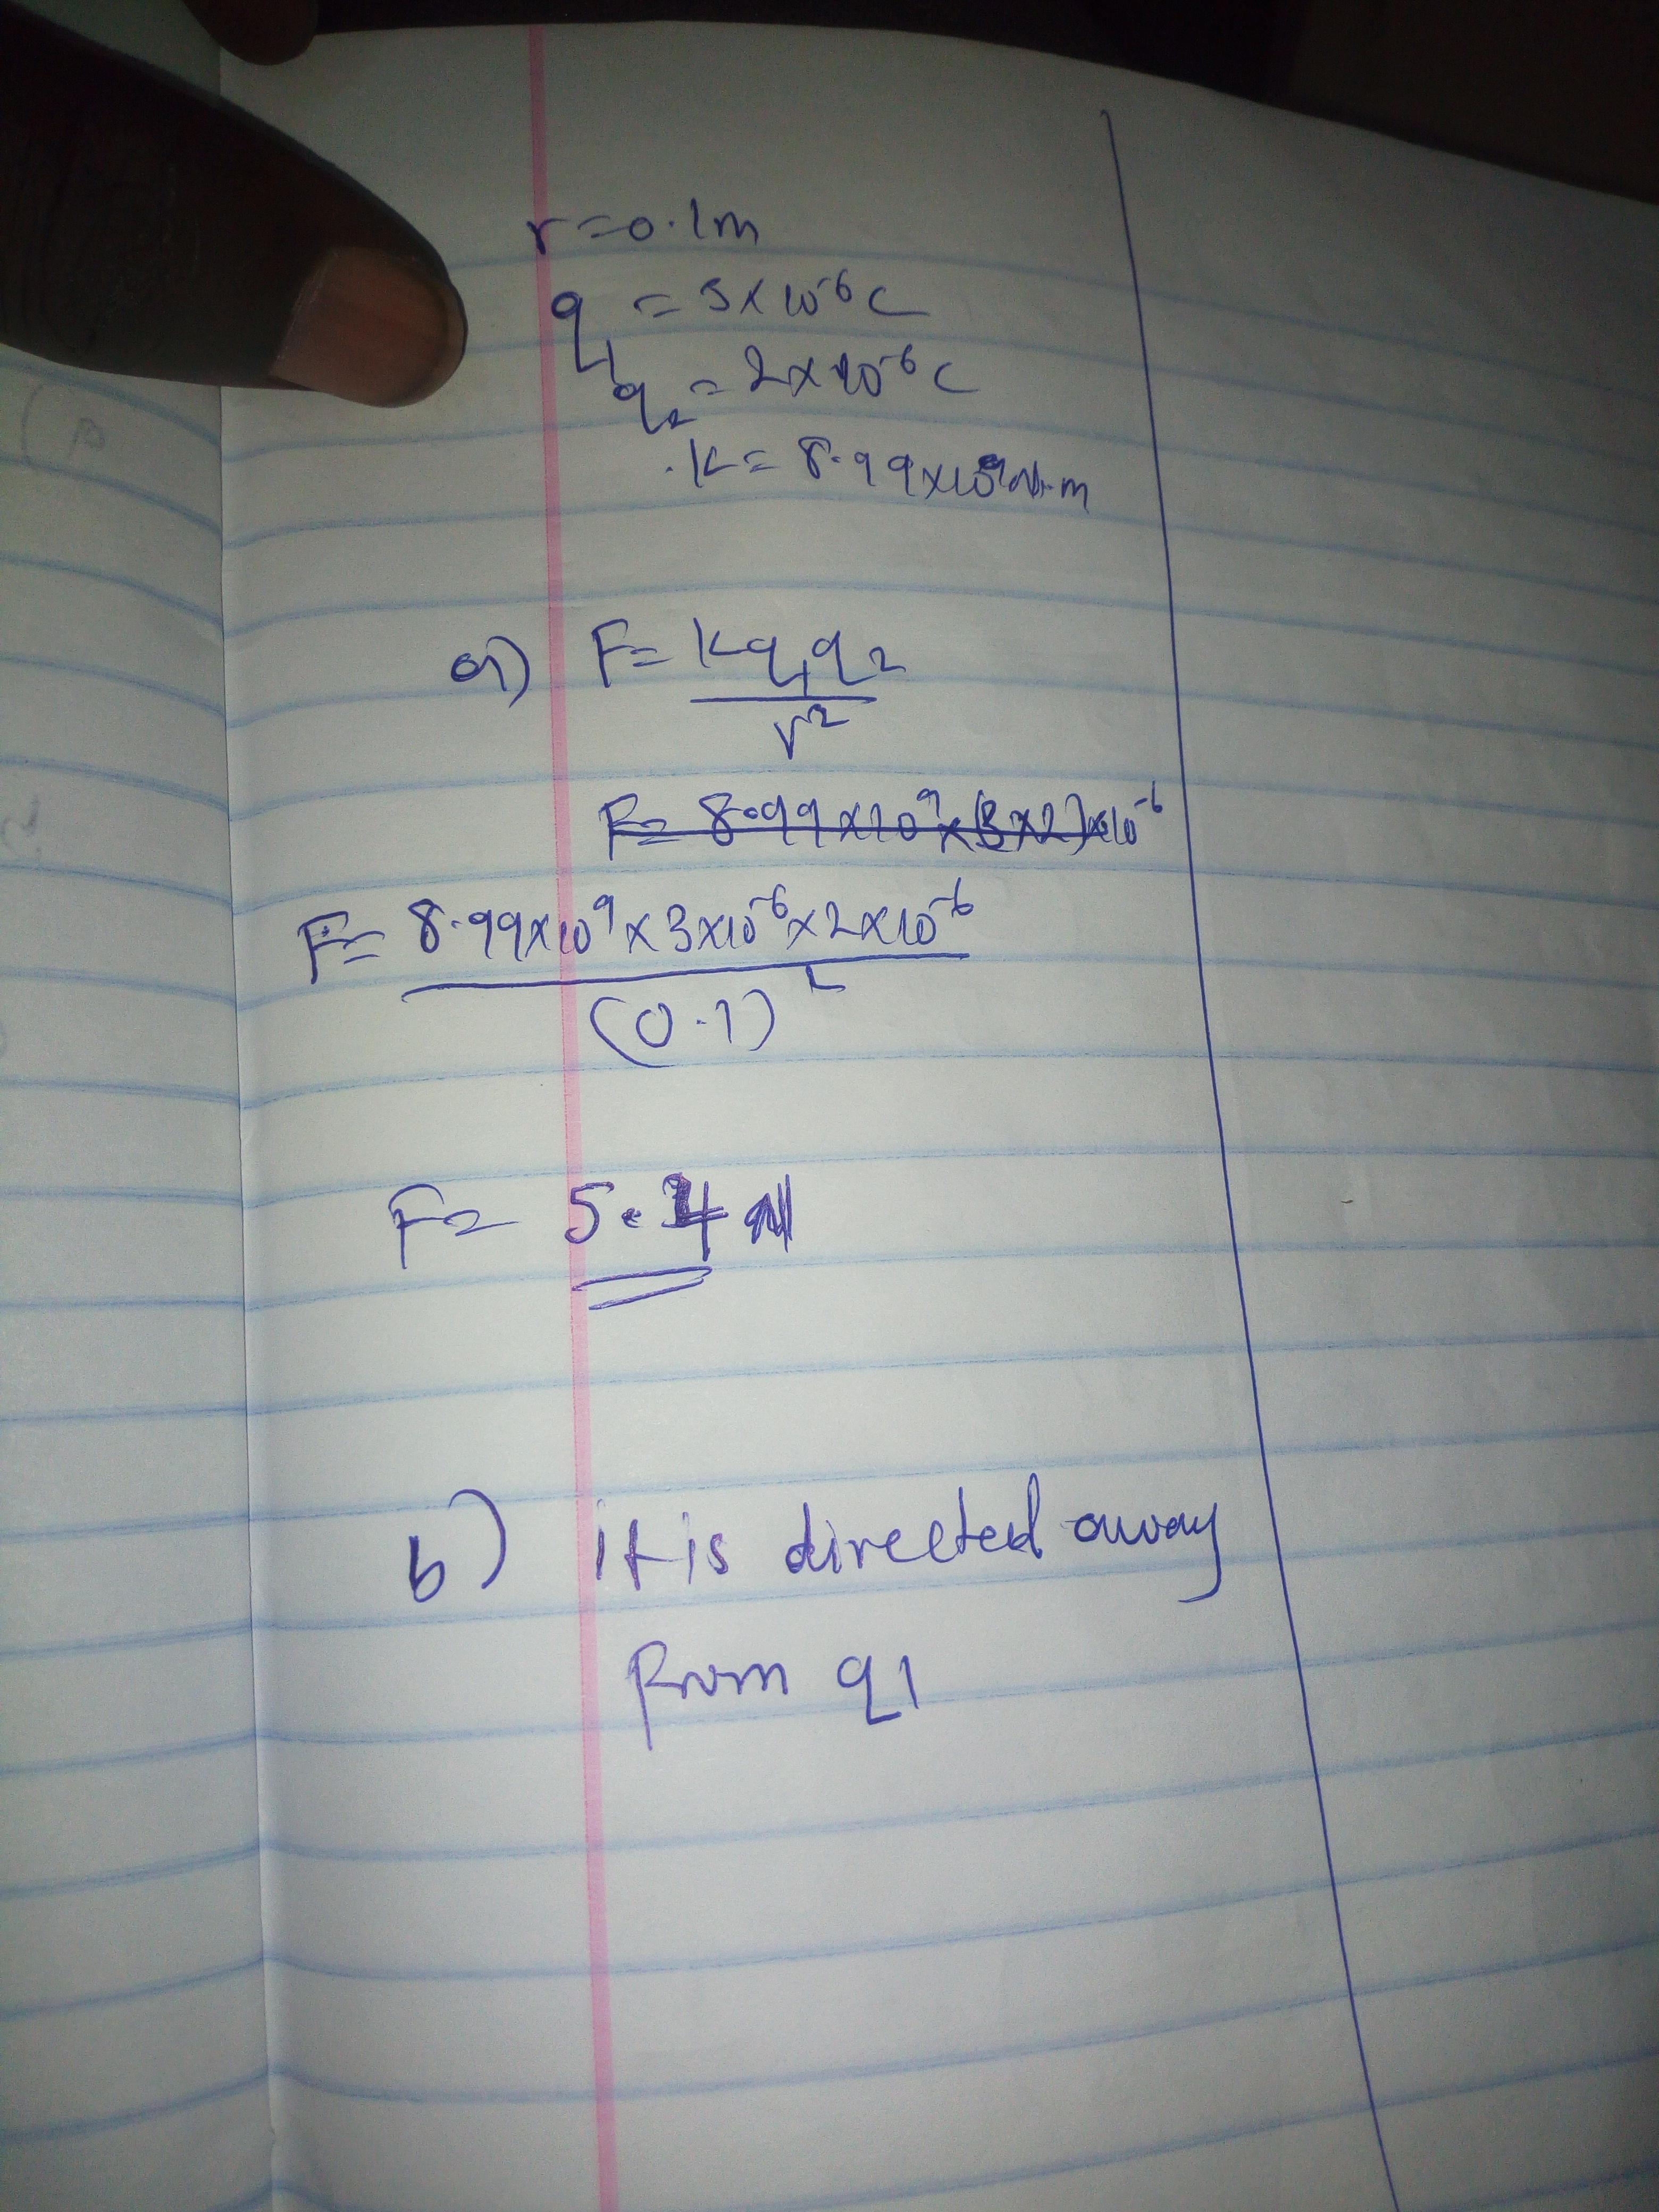 r=0.1m
q₁ = 3×10⁻⁶C
q₂ = 2×10⁻⁶C
K= 8.99×10⁹N.m
a) F= Kq₁q₂
r²
F= 8.99×10⁹×(3×2)×10⁻⁶
F= 8.99×10⁹×3×10⁻⁶×2×10⁻⁶
(0.1)²
F= 5.4N
b) it is directed away
from q1